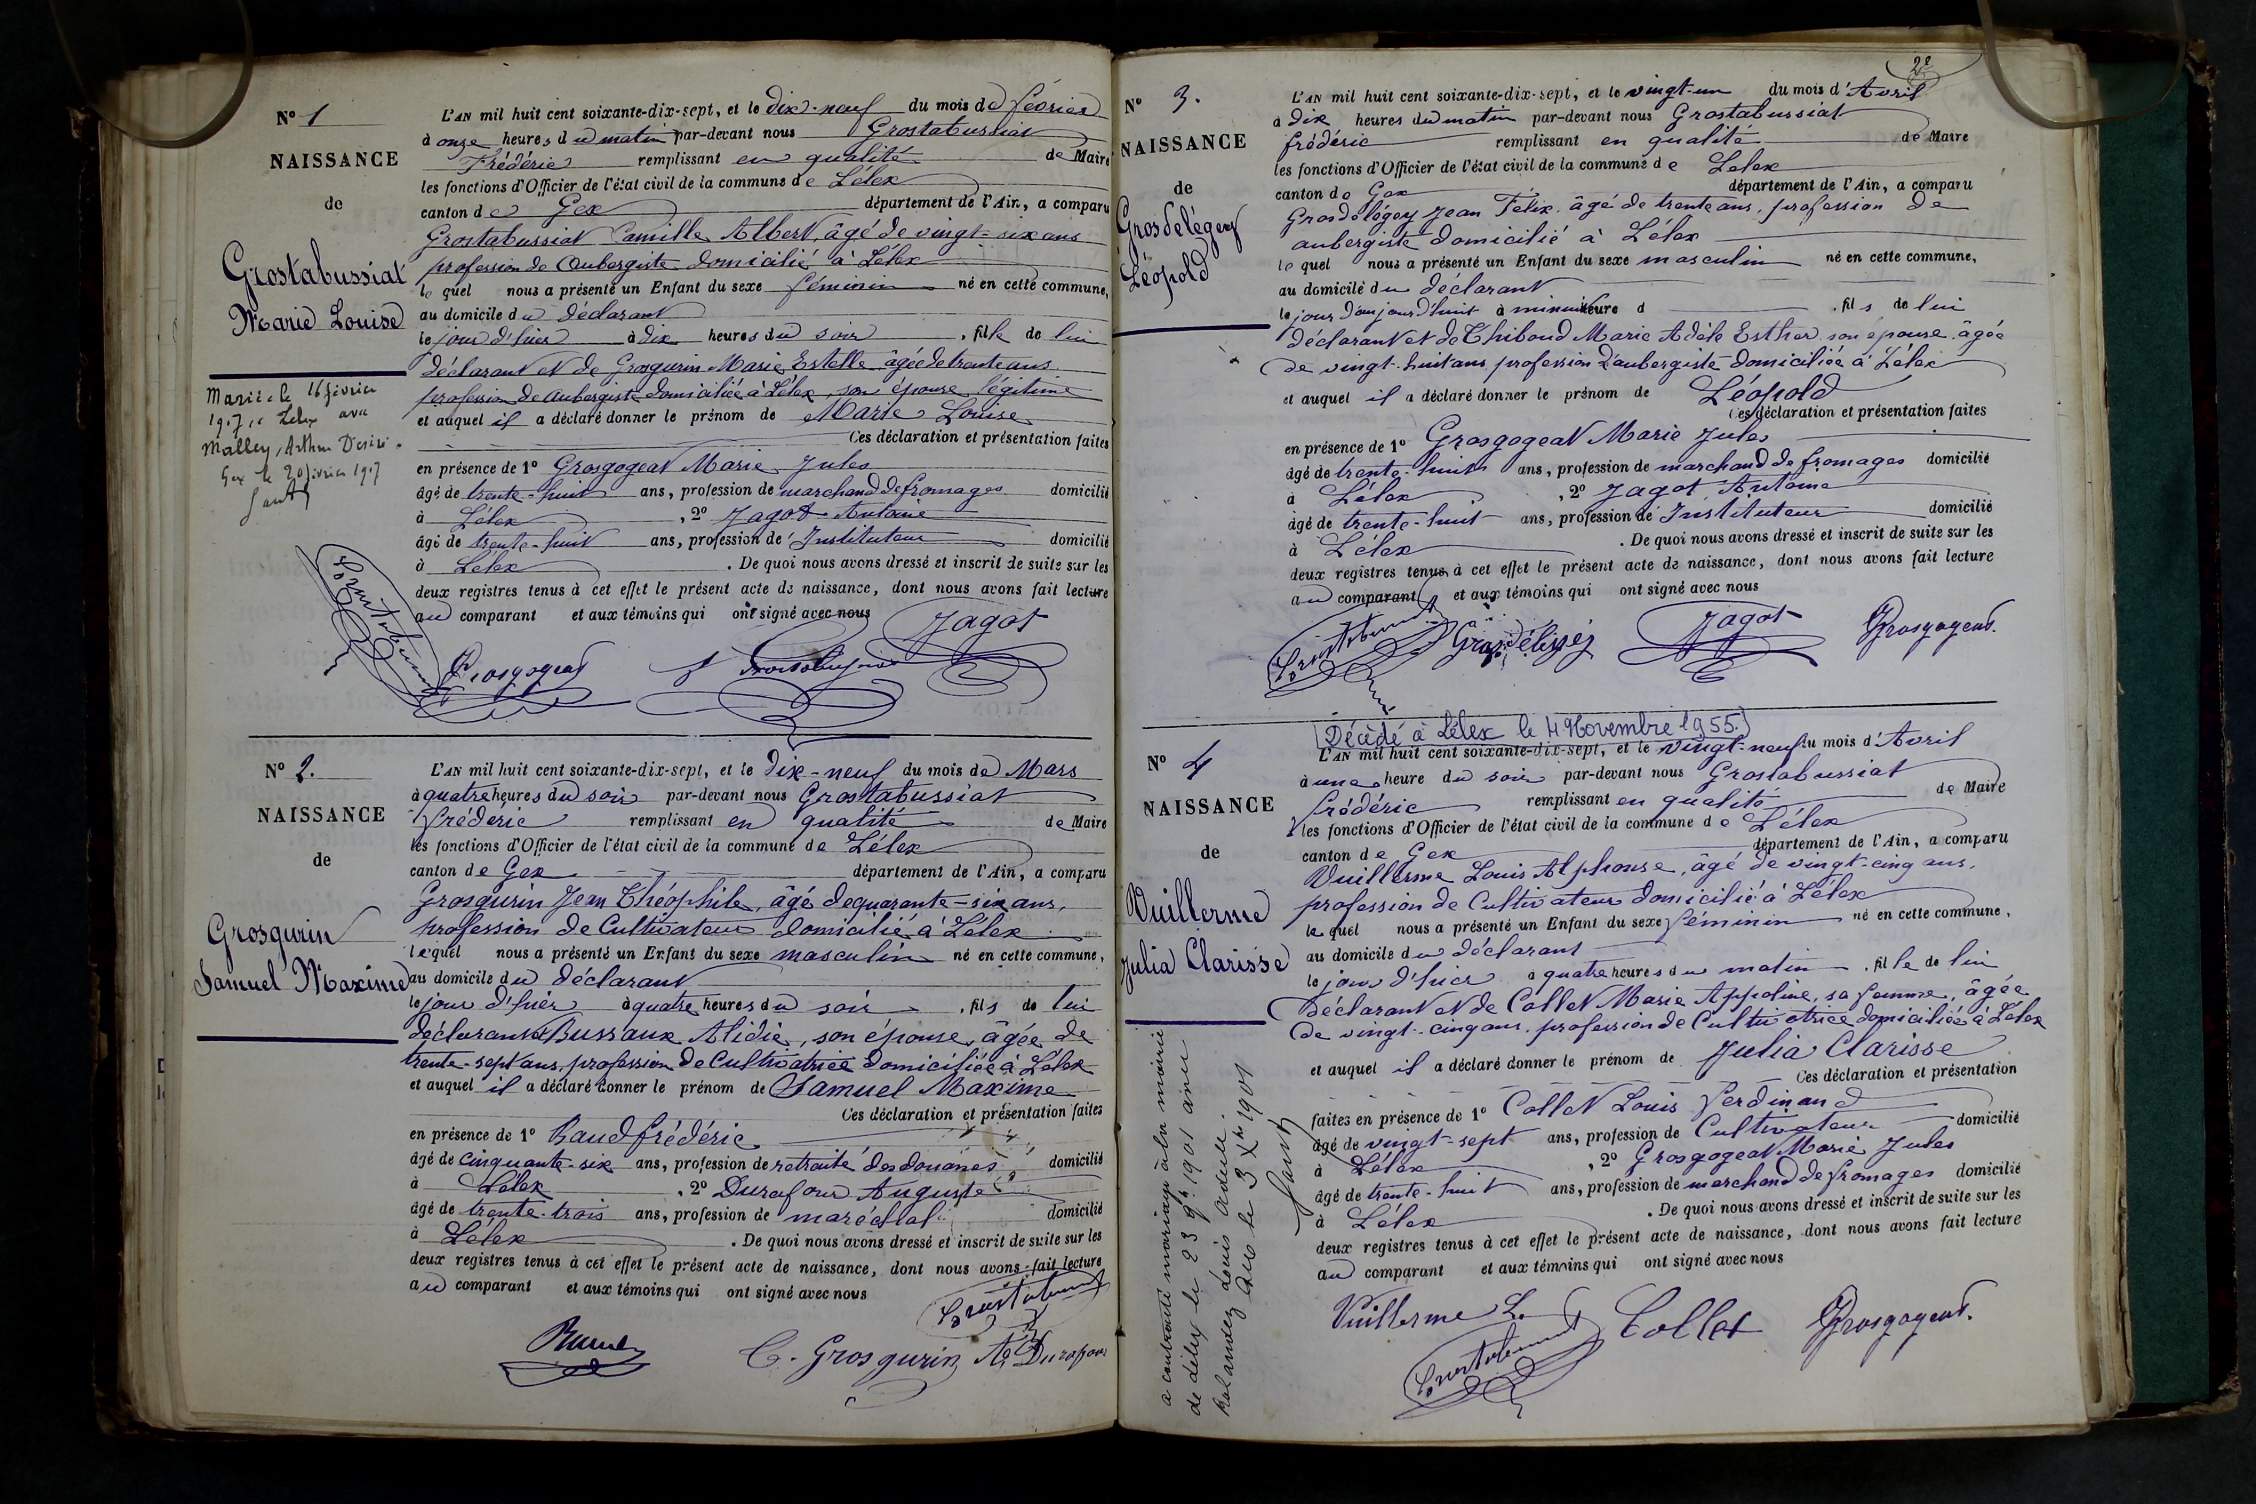 N° 1
NAISSANCE
de
Grostabussiat
Marie Louise
Mariée le 16 février
1907 à Lélex avec
Malley, Arthur Désiré.
Gex le 20 février 1907
L'AN mil huit cent soixante-dix-sept, et le dix-neuf du mois de février
à onze heures du matin par-devant nous Grostabussiat
Frédéric remplissant en qualité de Maire
les fonctions d'Officier de l'état civil de la commune de Lélex
canton de Gex département de l'Ain, a comparu
Grostabussiat Camille Albert, âgé de vingt-six ans
profession de Aubergiste domicilié à Lélex
lequel nous a présenté un Enfant du sexe féminin né en cette commune,
au domicile du déclarant
le jour d'hier à dix heures du soir, fille de lui
déclarant et de Grosgurin Marie Estelle âgée de trente ans
profession de aubergiste domiciliée à Lélex, son épouse légitime
et auquel il a déclaré donner le prénom de Marie Louise
Ces déclaration et présentation faites
en présence de 1° Grosgogeat Marie Jules
âgé de trente-huit ans, profession de marchand de fromages domicilié
à Lélex, 2° Jagot Antoine
âgé de trente-huit ans, profession de Instituteur domicilié
à Lélex. De quoi nous avons dressé et inscrit de suite sur les
deux registres tenus à cet effet le présent acte de naissance, dont nous avons fait lecture
au comparant et aux témoins qui ont signé avec nous
Jagot
Grosgogeat
N° 2.
NAISSANCE
de
Grosgurin
Samuel Maxime
L'AN mil huit cent soixante-dix-sept, et le dix-neuf du mois de Mars
à quatre heures du soir par-devant nous Grostabussiat
frédéric remplissant en qualité de Maire
les fonctions d'Officier de l'état civil de la commune de Lélex
canton de Gex département de l'Ain, a comparu
Grosgurin Jean Théophile, âgé de quarante-six ans,
profession de Cultivateur domicilié à Lélex
lequel nous a présenté un Enfant du sexe masculin né en cette commune,
au domicile du déclarant
le jour d'hier à quatre heures du soir, fils de lui
déclarant et Bussaux Alidie, son épouse, âgée de
trente-sept ans, profession de Cultivatrice domiciliée à Lélex
et auquel il a déclaré donner le prénom de Samuel Maxime
Ces déclaration et présentation faites
en présence de 1° Raud frédéric
âgé de cinquante-six ans, profession de retraité des douanes domicilié
à Lélex, 2° Durafour Auguste
âgé de trente-trois ans, profession de maréchal domicilié
à Lélex. De quoi nous avons dressé et inscrit de suite sur les
deux registres tenus à cet effet le présent acte de naissance, dont nous avons fait lecture
au comparant et aux témoins qui ont signé avec nous
C. Grosgurin Durafour
2e
N° 3.
NAISSANCE
de
Grosdelégey
Léopold
L'AN mil huit cent soixante-dix-sept, et le vingt-un du mois d'Avril
à dix heures du matin par-devant nous Grostabussiat
frédéric remplissant en qualité de Maire
les fonctions d'Officier de l'état civil de la commune de Lélex
canton de Gex département de l'Ain, a comparu
Grosdelégey Jean Félix, âgé de trente ans, profession de
aubergiste domicilié à Lélex
lequel nous a présenté un Enfant du sexe masculin né en cette commune,
au domicile du déclarant
le jour d'aujourd'huit à minuit heure d, fils de lui
déclarant et de Thiboud Marie Adèle Esther son épouse âgée
de vingt-huit ans profession d'aubergiste domiciliée à Lélex
et auquel il a déclaré donner le prénom de Léopold
Ces déclaration et présentation faites
en présence de 1° Grosgogeat Marie Jules
âgé de trente-huit ans, profession de marchand de fromages domicilié
à Lélex, 2° Jagot Antoine
âgé de trente-huit ans, profession de Instituteur domicilié
à Lélex. De quoi nous avons dressé et inscrit de suite sur les
deux registres tenus à cet effet le présent acte de naissance, dont nous avons fait lecture
au comparant et aux témoins qui ont signé avec nous
Jagot Grosgogeat.
Décédé à Lélex le 4 Novembre 1955.
N° 4
NAISSANCE
de
Vuillerme
Julia Clarisse
a contracté mariage à la mairie
de Lélex le 23 9bre 1901 avec
le 3 Xbre 1901
L'AN mil huit cent soixante-dix-sept, et le vingt-neuf du mois d'Avril
à une heure du soir par-devant nous Grostabussiat
frédéric remplissant en qualité de Maire
les fonctions d'Officier de l'état civil de la commune de Lélex
canton de Gex département de l'Ain, a comparu
Vuillerme Louis Alphonse, âgé de vingt-cinq ans,
profession de Cultivateur domicilié à Lélex
lequel nous a présenté un Enfant du sexe féminin né en cette commune,
au domicile du déclarant
le jour d'hier à quatre heures du matin, fille de lui
Déclarant et de Collet Marie Appoline, sa femme, âgée
de vingt-cinq ans, profession de Cultivatrice domiciliée à Lélex
et auquel il a déclaré donner le prénom de Julia Clarisse
Ces déclaration et présentation
faites en présence de 1° Collet Louis Ferdinand
âgé de vingt-sept ans, profession de Cultivateur domicilié
à Lélex, 2° Grosgogeat Marie Jules
âgé de trente-huit ans, profession de marchand de fromages domicilié
à Lélex. De quoi nous avons dressé et inscrit de suite sur les
deux registres tenus à cet effet le présent acte de naissance, dont nous avons fait lecture
au comparant et aux témoins qui ont signé avec nous
Vuillerme L. Collet Grosgogeat.